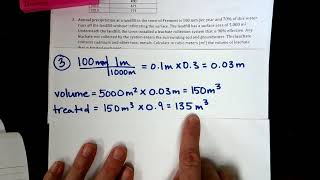 3. Annual precipitation at a landfill in the town of Fremont is 100 mm per year and 70% of this water
runs off the landfill without infiltrating the surface. The landfill has a surface area of 5,000 m²
Underneath the landfill, the town installed a leachate collection system that is 90% effective. Any
leachate not collected by the system enters the surrounding soil and groundwater. The leachate
contains cadmium and other toxic metals. Calculate in cubic meters [m³] the volume of leachate
③ 100mm 1m = 0.1m x 0.3 = 0.03m
1000mm
volume = 5000m² x 0.03m = 150m³
treated = 150m³ x 0.9 = 135m³